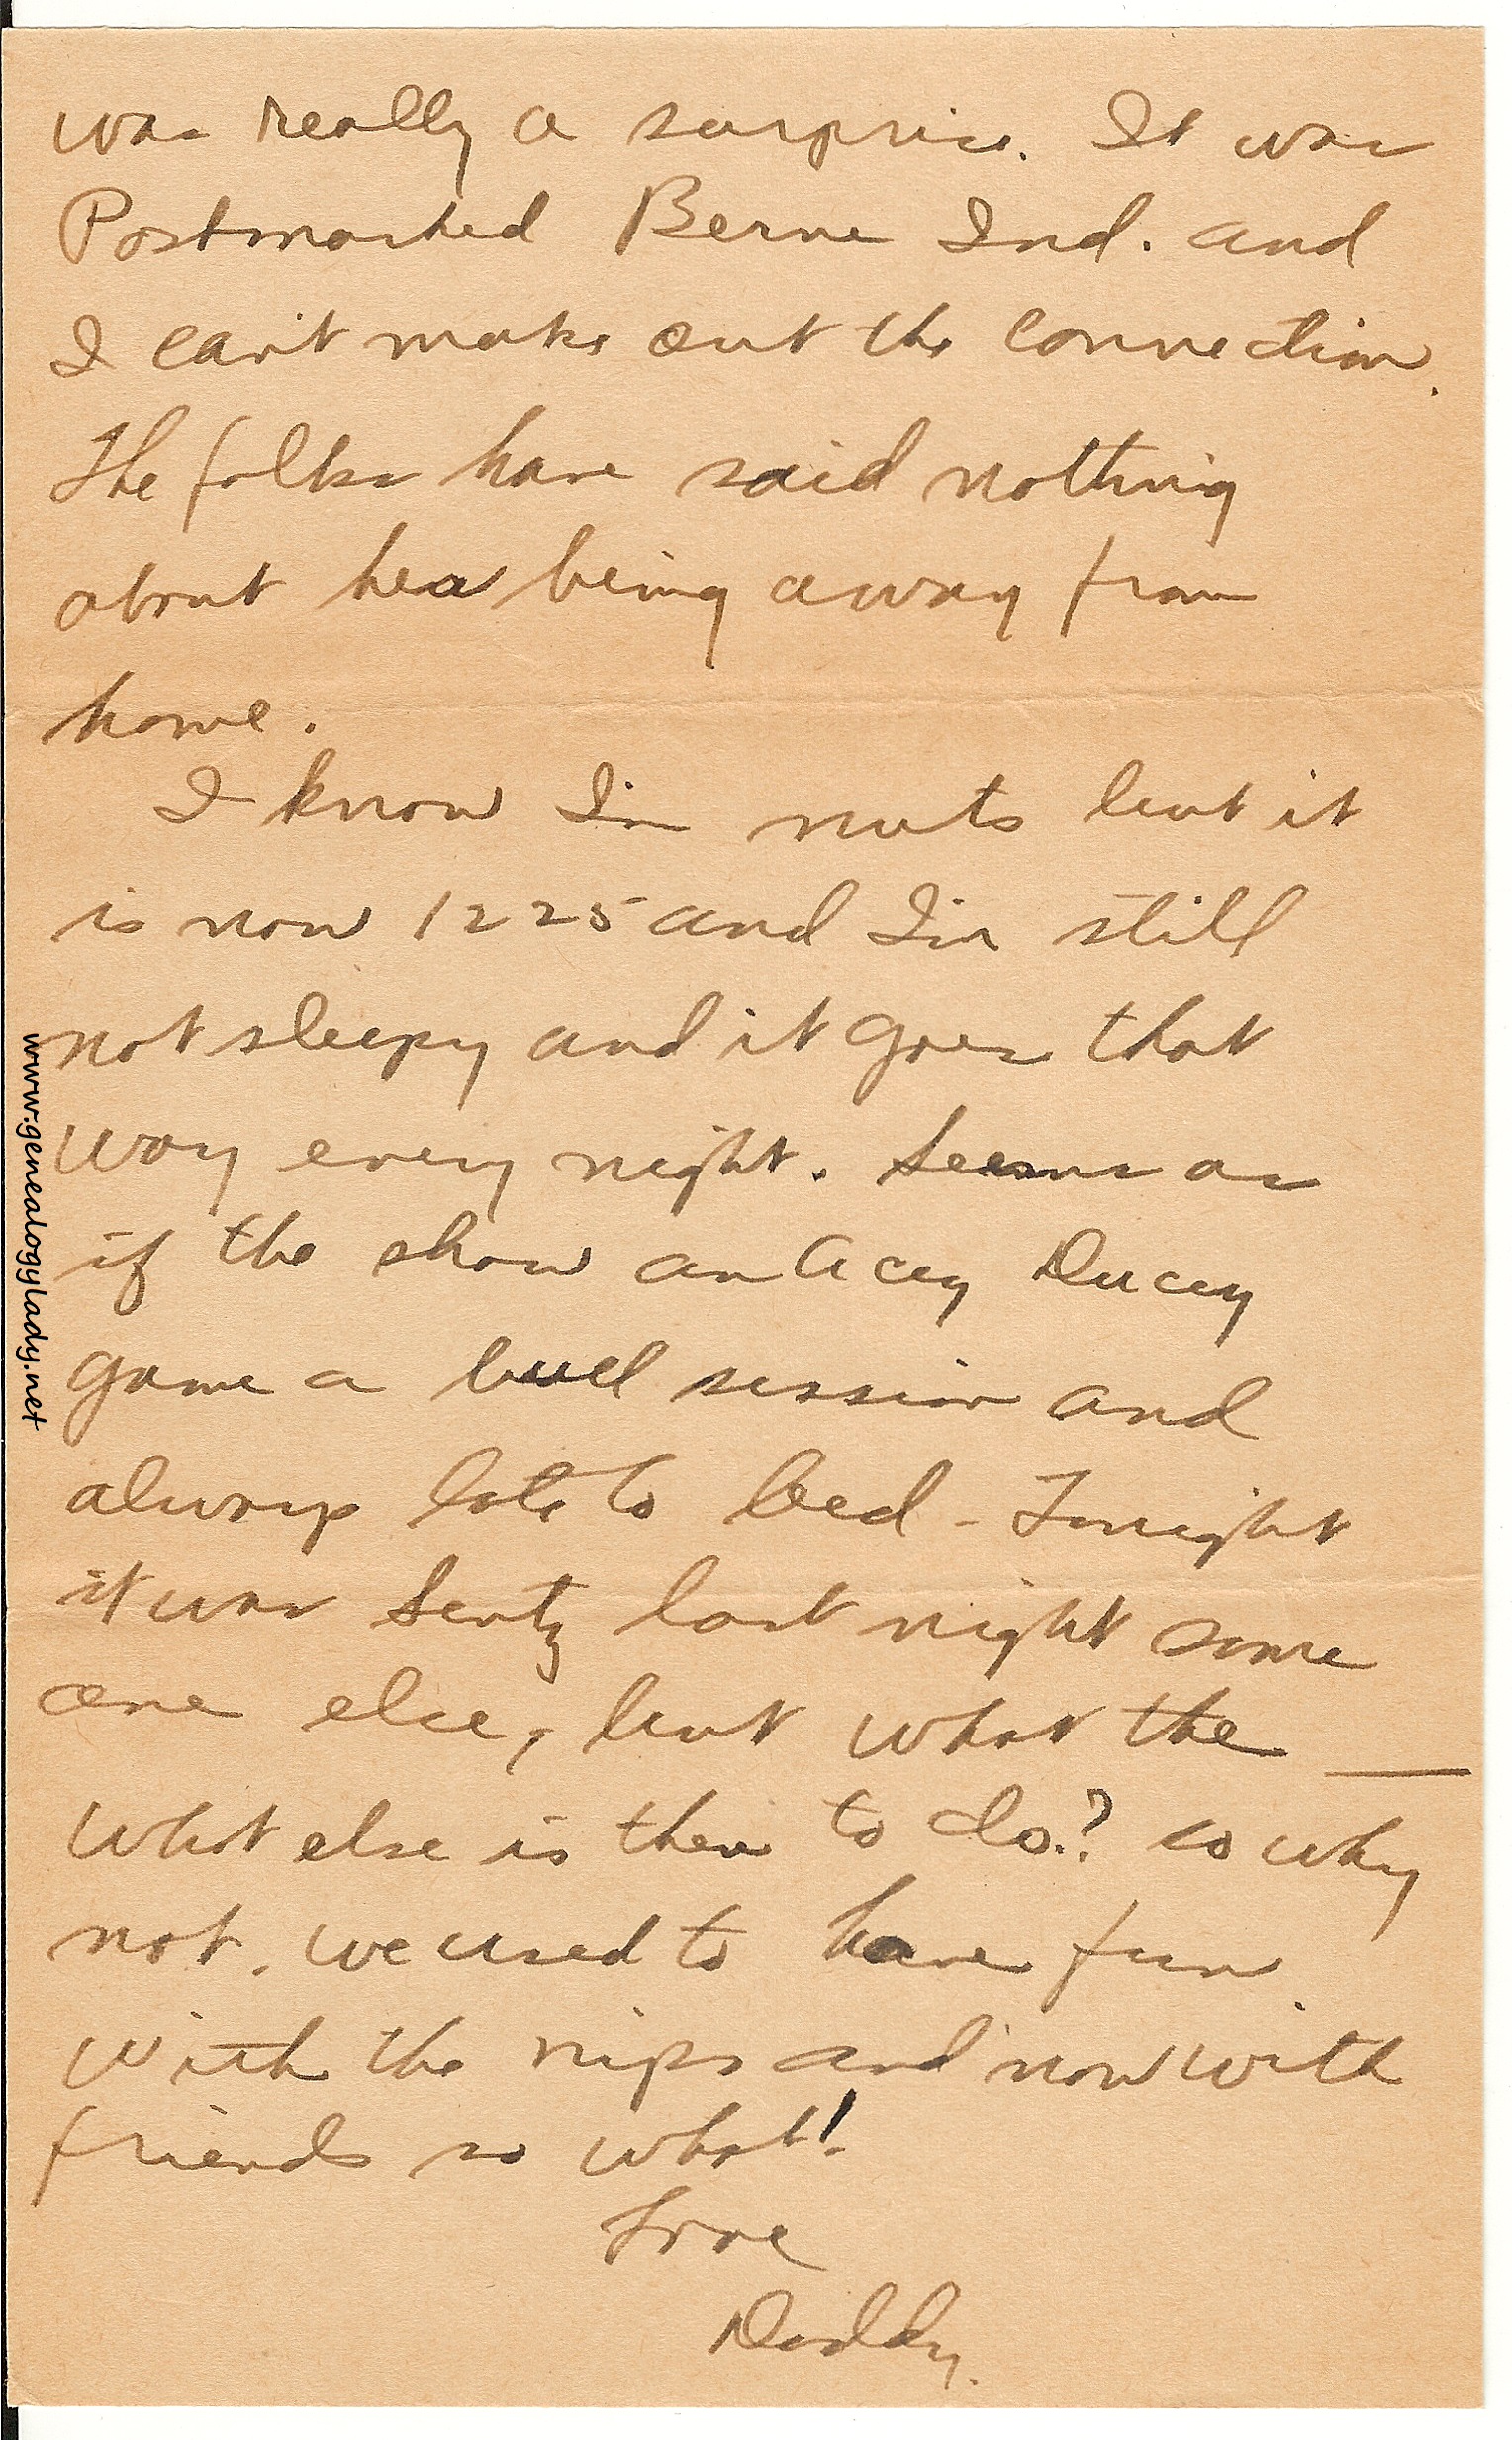 was really a surprise. It was
Postmarked Berne Ind. and
I can't make out the connection.
The folks have said nothing
about her being away from
home.
I know I'm nuts but it
is now 1225 and I'm still
not sleepy and it goes that
way every night. Seems as
if the show an Acey Ducey
game a bull session and
always late to bed - Tonight
it was Sentz last night some
one else, but what the ___
what else is there to do? so why
not. we used to have fun
with the nips and now with
friends so what!
Love
Daddy.
www.genealogylady.net